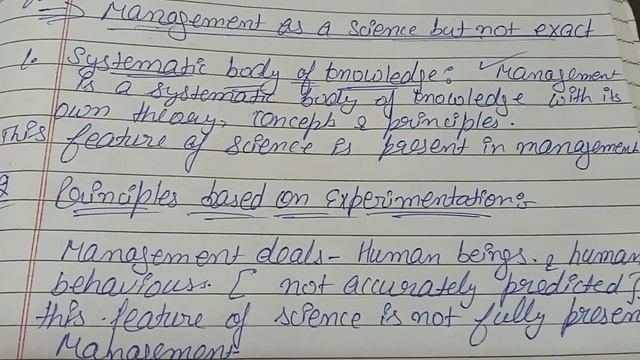 ⇒ Management as a science but not exact
1. Systematic body of knowledge: ✓ Management
is a systematic body of knowledge with its
own theory, concept & principles.
This feature of science is present in management
2 Principles based on Experimentation:-
Management deals - Human beings. & human
behaviours. [ not accurately predicted ]
this feature of science is not fully presen
Management